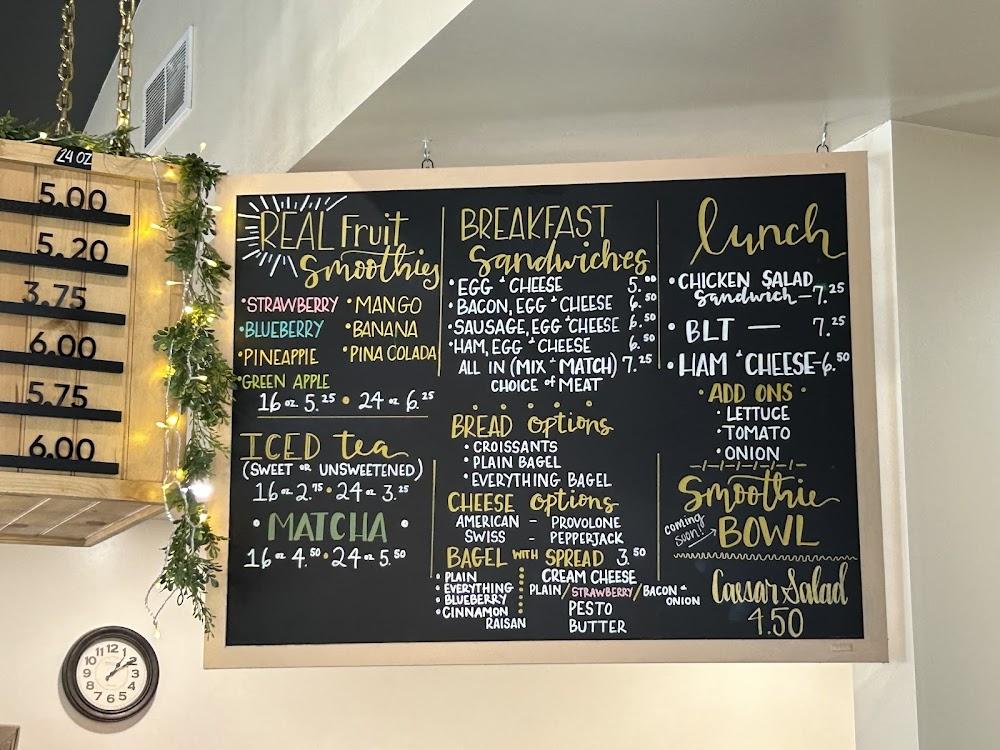 24 OZ
5.00
5.20
3.75
6.00
5.75
6.00
REAL Fruit
Smoothies
•STRAWBERRY •MANGO
•BLUEBERRY •BANANA
•PINEAPPLE •PINA COLADA
•GREEN APPLE
16 oz 5.25 • 24 oz 6.25
ICED tea
(SWEET OR UNSWEETENED)
16 oz 2.75 • 24 oz 3.25
• MATCHA •
16 oz 4.50 • 24 oz 5.50
BREAKFAST
Sandwiches
•EGG & CHEESE 5.00
•BACON, EGG & CHEESE 6.50
•SAUSAGE, EGG & CHEESE 6.50
•HAM, EGG & CHEESE 6.50
ALL IN (MIX & MATCH) 7.25
CHOICE of MEAT
BREAD options
• CROISSANTS
• PLAIN BAGEL
• EVERYTHING BAGEL
CHEESE options
AMERICAN - PROVOLONE
SWISS - PEPPERJACK
BAGEL WITH SPREAD 3.50
• PLAIN
• EVERYTHING
• BLUEBERRY
• CINNAMON
RAISAN
CREAM CHEESE
PLAIN/STRAWBERRY/BACON &
ONION
PESTO
BUTTER
lunch
•CHICKEN SALAD
Sandwich - 7.25
• BLT — 7.25
•HAM & CHEESE-6.50
• ADD ONS •
• LETTUCE
•TOMATO
•ONION
Smoothie
coming
soon!
BOWL
Caesar Salad
4.50
12
1
2
3
4
5
6
7
8
9
10
11